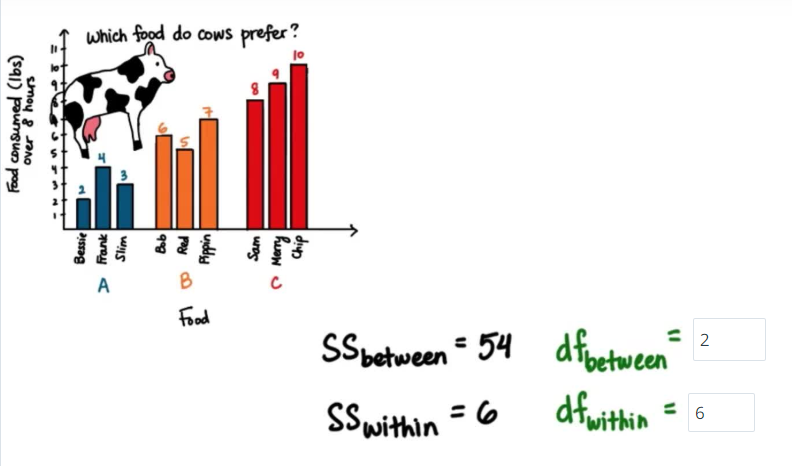 Which food do cows prefer?
Food consumed (lbs)
over 8 hours
11
10
9
8
6
5
4
3
2
1
2
4
3
6
5
7
8
9
10
Bessie
Frank
Slim
Bob
Red
Pippin
Sam
Merry
Chip
A
B
C
Food
SSbetween = 54
dfbetween = 2
SSwithin = 6
dfwithin = 6